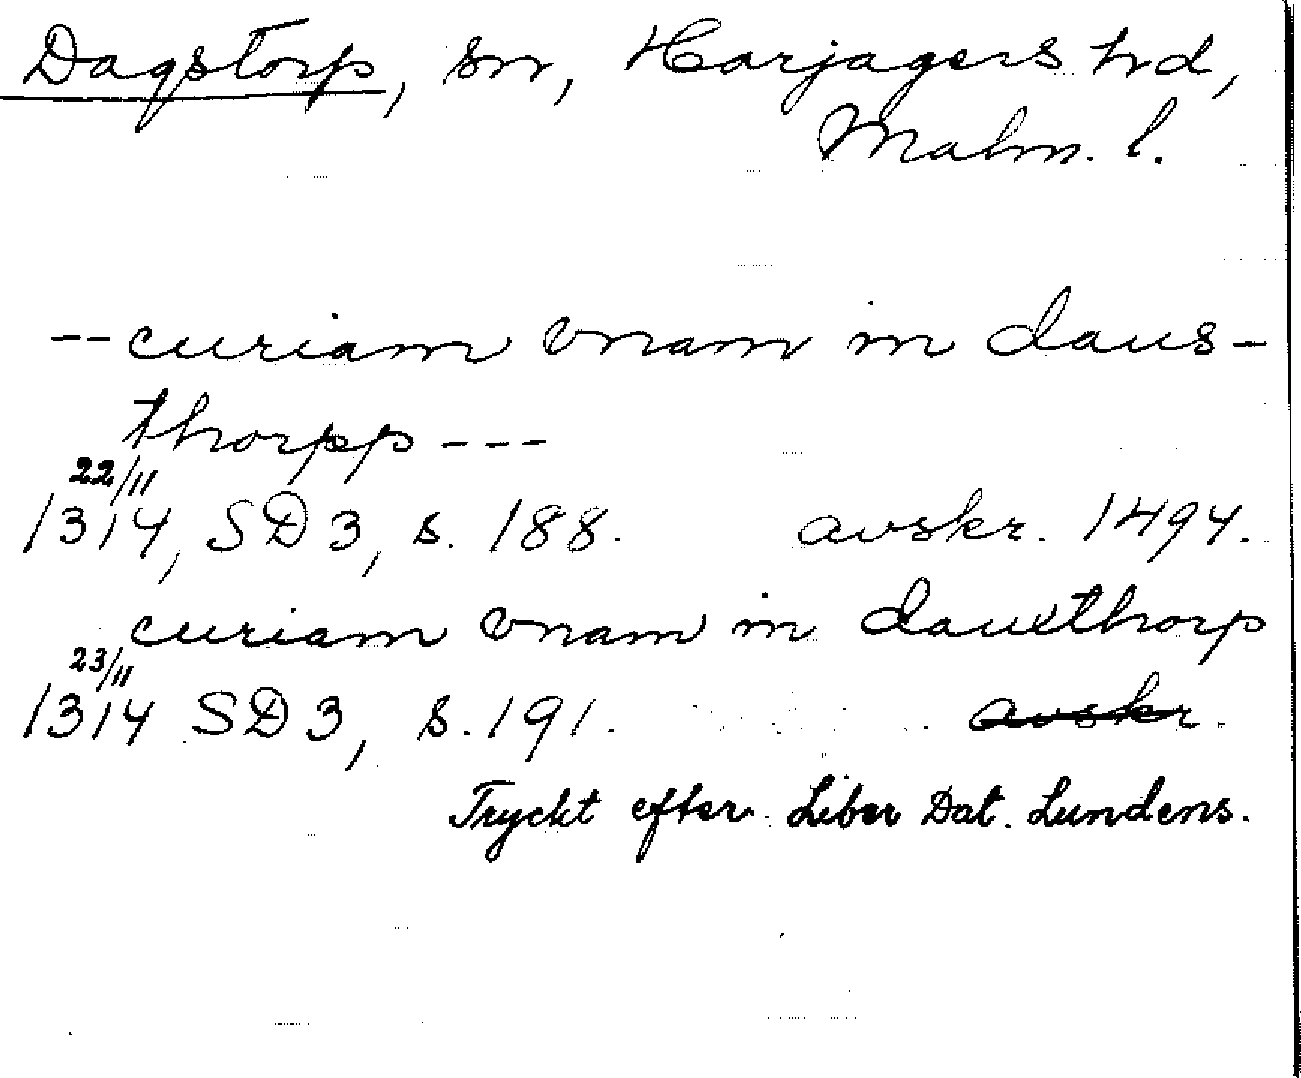 Dagstorp, sn, Harjagers hd,
Malm. l.
-- curiam vnam in daus-
thorpp ---
22/11
1314, SD 3, s. 188. avskr. 1494.
curiam vnam in dauxthorp
23/11
1314 SD 3, s. 191. avskr.
Tryckt efter Liber Dat. Lundens.